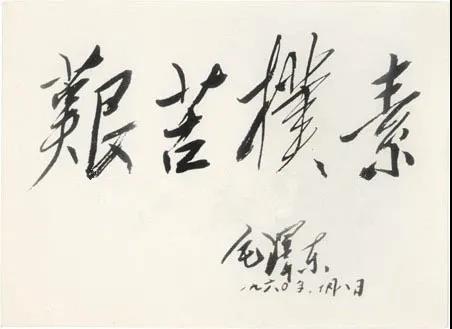 艱苦樸素
毛澤东
一九六〇年.一月八日